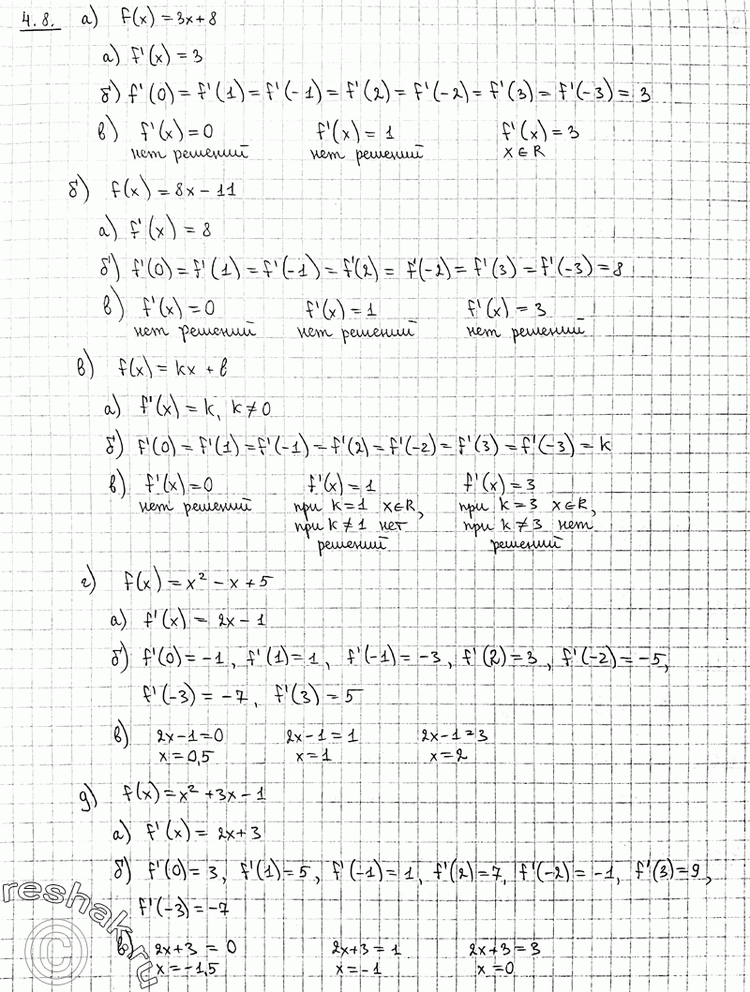 4.8. а) f(x) = 3x + 8
а) f'(x) = 3
б) f'(0) = f'(1) = f'(-1) = f'(2) = f'(-2) = f'(3) = f'(-3) = 3
в) f'(x) = 0 f'(x) = 1 f'(x) = 3
нет решений нет решений x ∈ R
б) f(x) = 8x - 11
а) f'(x) = 8
б) f'(0) = f'(1) = f'(-1) = f'(2) = f'(-2) = f'(3) = f'(-3) = 8
в) f'(x) = 0 f'(x) = 1 f'(x) = 3
нет решений нет решений нет решений
в) f(x) = kx + b
а) f'(x) = k, k ≠ 0
б) f'(0) = f'(1) = f'(-1) = f'(2) = f'(-2) = f'(3) = f'(-3) = k
в) f'(x) = 0 f'(x) = 1 f'(x) = 3
нет решений при k = 1 x ∈ R, при k = 3 x ∈ R,
при k ≠ 1 нет при k ≠ 3 нет
решений решений
г) f(x) = x² - x + 5
а) f'(x) = 2x - 1
б) f'(0) = -1, f'(1) = 1, f'(-1) = -3, f'(2) = 3, f'(-2) = -5,
f'(-3) = -7, f'(3) = 5
в) 2x - 1 = 0 2x - 1 = 1 2x - 1 = 3
x = 0,5 x = 1 x = 2
д) f(x) = x² + 3x - 1
а) f'(x) = 2x + 3
б) f'(0) = 3, f'(1) = 5, f'(-1) = 1, f'(2) = 7, f'(-2) = -1, f'(3) = 9,
f'(-3) = -7
в) 2x + 3 = 0 2x + 3 = 1 2x + 3 = 3
x = -1,5 x = -1 x = 0
reshak.ru
©